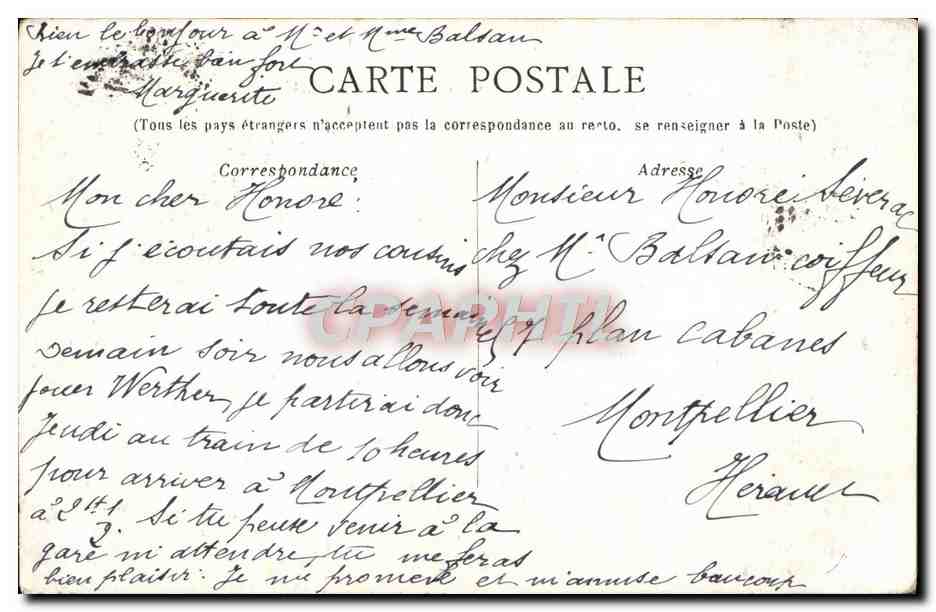 Bien le bonjour à Mr et Mme Balsan
Je t'embrasse bien fort
Marguerite
CARTE POSTALE
(Tous les pays étrangers n'acceptent pas la correspondance au recto, se renseigner à la Poste)
Correspondance
Mon cher Honoré.
Si j'écoutais nos cousins
je resterai toute la semaine
Demain soir nous allons voir
jouer Werther, je partirai donc
Jeudi au train de 10 heures
pour arriver à Montpellier
à 2h 1/2. Si tu peux venir à la
gare m'attendre, tu me feras
bien plaisir. Je me promene et m'amuse baucoup
Adresse
Monsieur Honoré Séverac
chez Mr Balsan coiffeur
7 plan cabanes
Montpellier
Hérault
CPARHTI